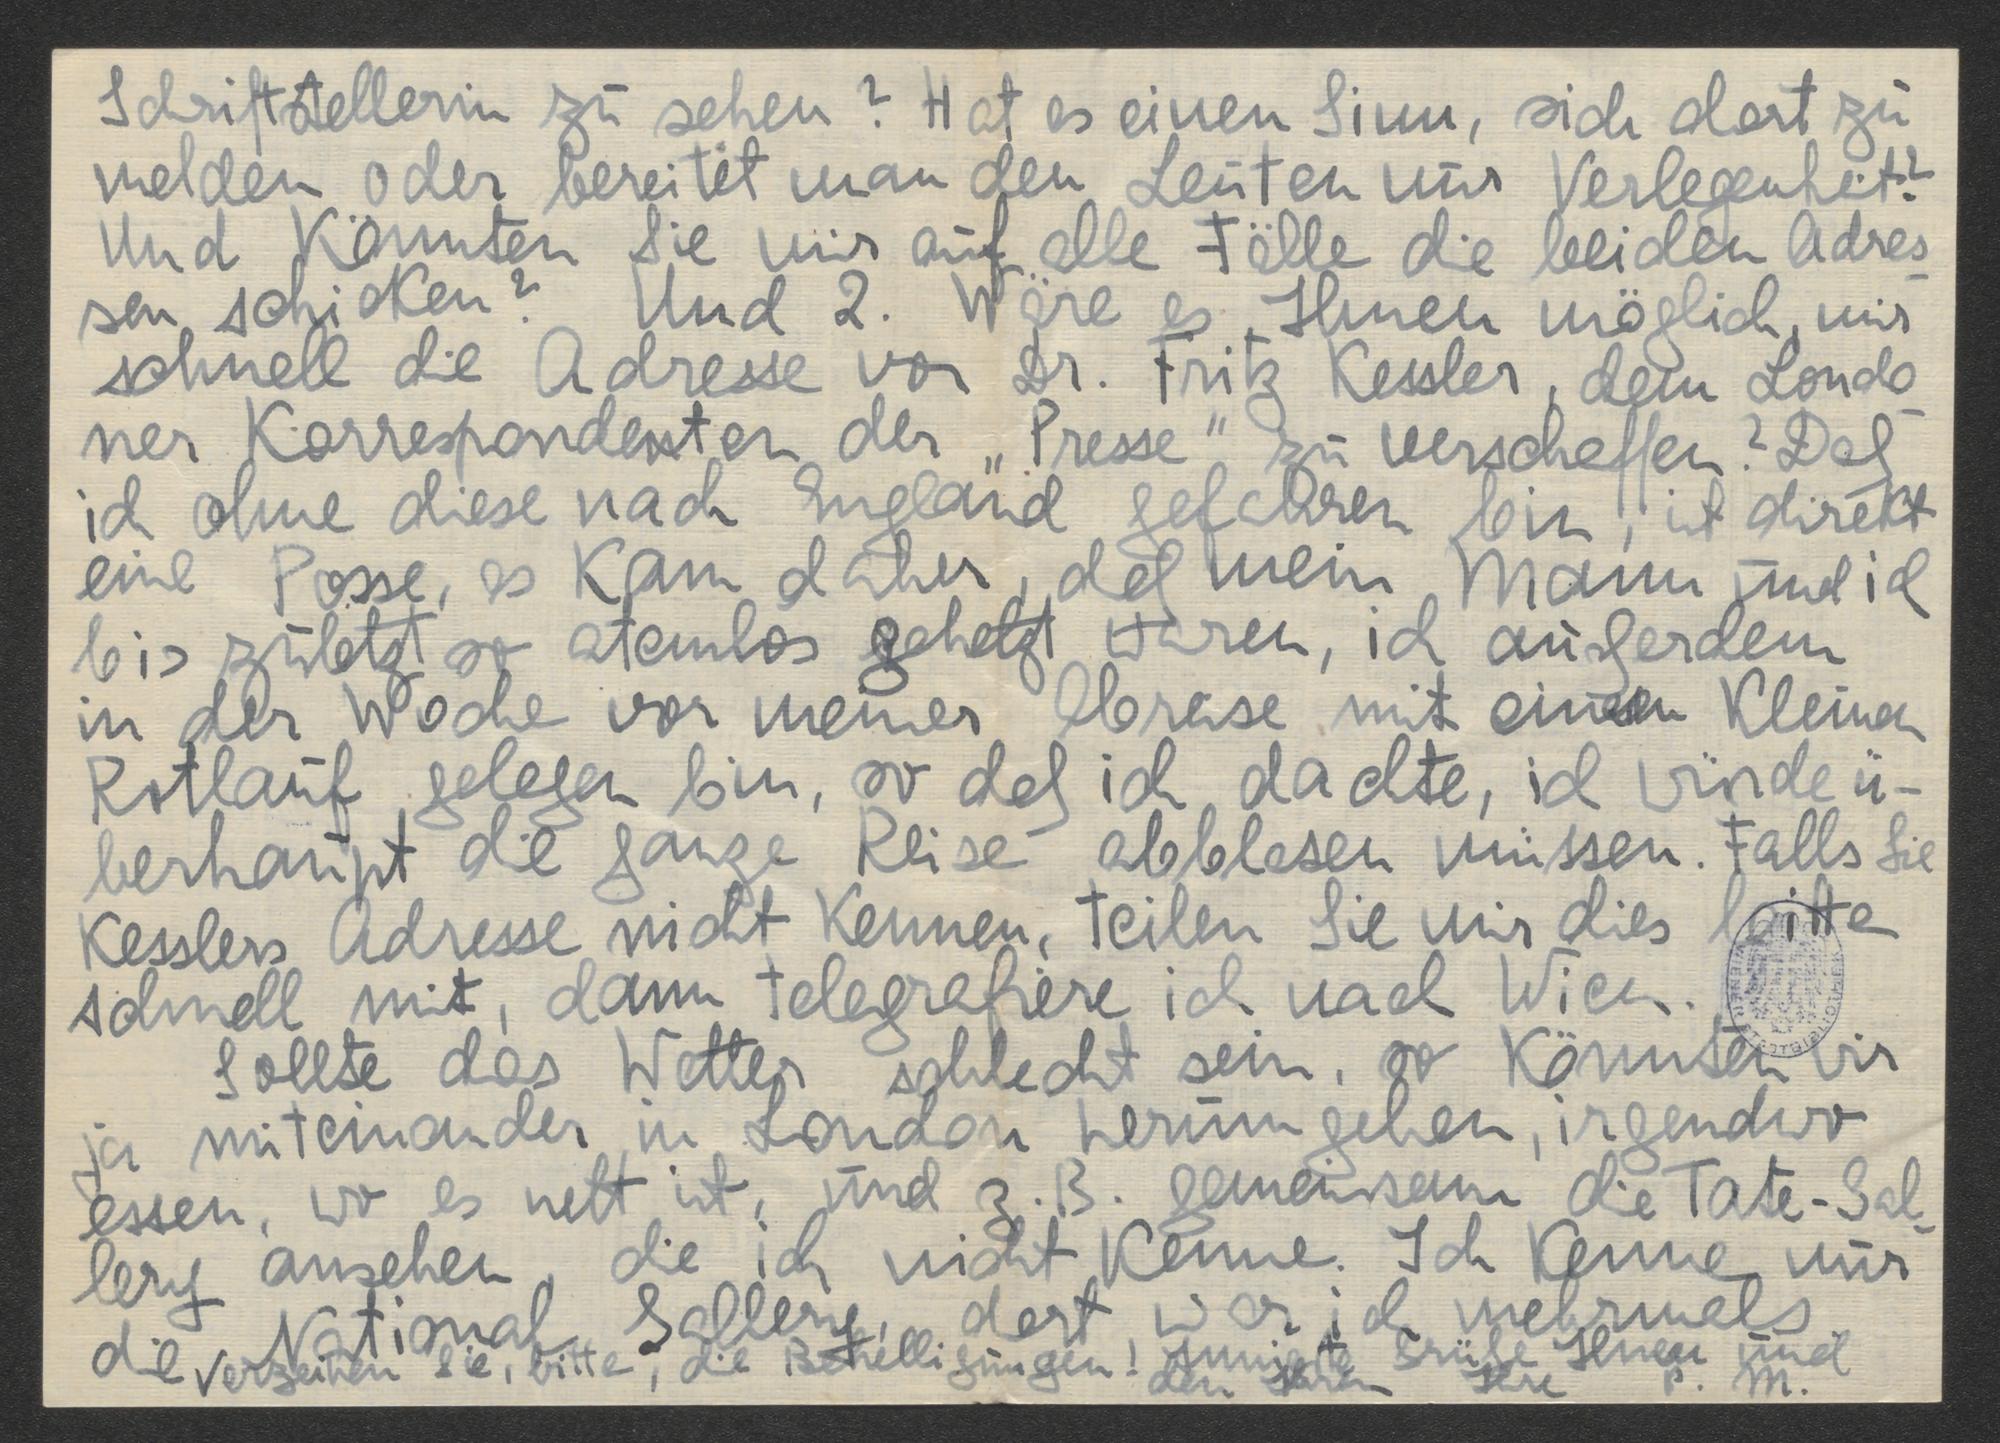 Schriftstellerin zu sehen? Hat es einen Sinn, sich dort zu
melden oder bereitet man den Leuten nur Verlegenheit?
Und könnten Sie mir auf alle Fälle die beiden Adres-
sen schicken? Und 2. Wäre es Ihnen möglich, mir
schnell die Adresse von Dr. Fritz Kessler, dem Londo-
ner Korrespondenten der „Presse" zu verschaffen? Daß
ich ohne diese nach England gefahren bin, ist direkt
eine Posse, es kam daher, daß mein Mann und ich
bis zuletzt so atemlos gehetzt waren, ich außerdem
in der Woche vor meiner Abreise mit einem kleinen
Rotlauf gelegen bin, so daß ich dachte, ich würde ü-
berhaupt die ganze Reise abblasen müssen. Falls Sie
Kesslers Adresse nicht kennen, teilen Sie mir dies bitte
schnell mit, dann telegrafiere ich nach Wien.
Sollte das Wetter schlecht sein, so könnten wir
ja miteinander in London herumgehen, irgendwo
essen, wo es nett ist, und z.B. gemeinsam die Tate-Gal-
lery ansehen, die ich nicht kenne. Ich kenne nur
die National Gallery, dort war ich mehrmals.
Verzeihen Sie, bitte, die Behelligungen! Innigste Grüße Ihnen und
den Ihren Ihre P. M.